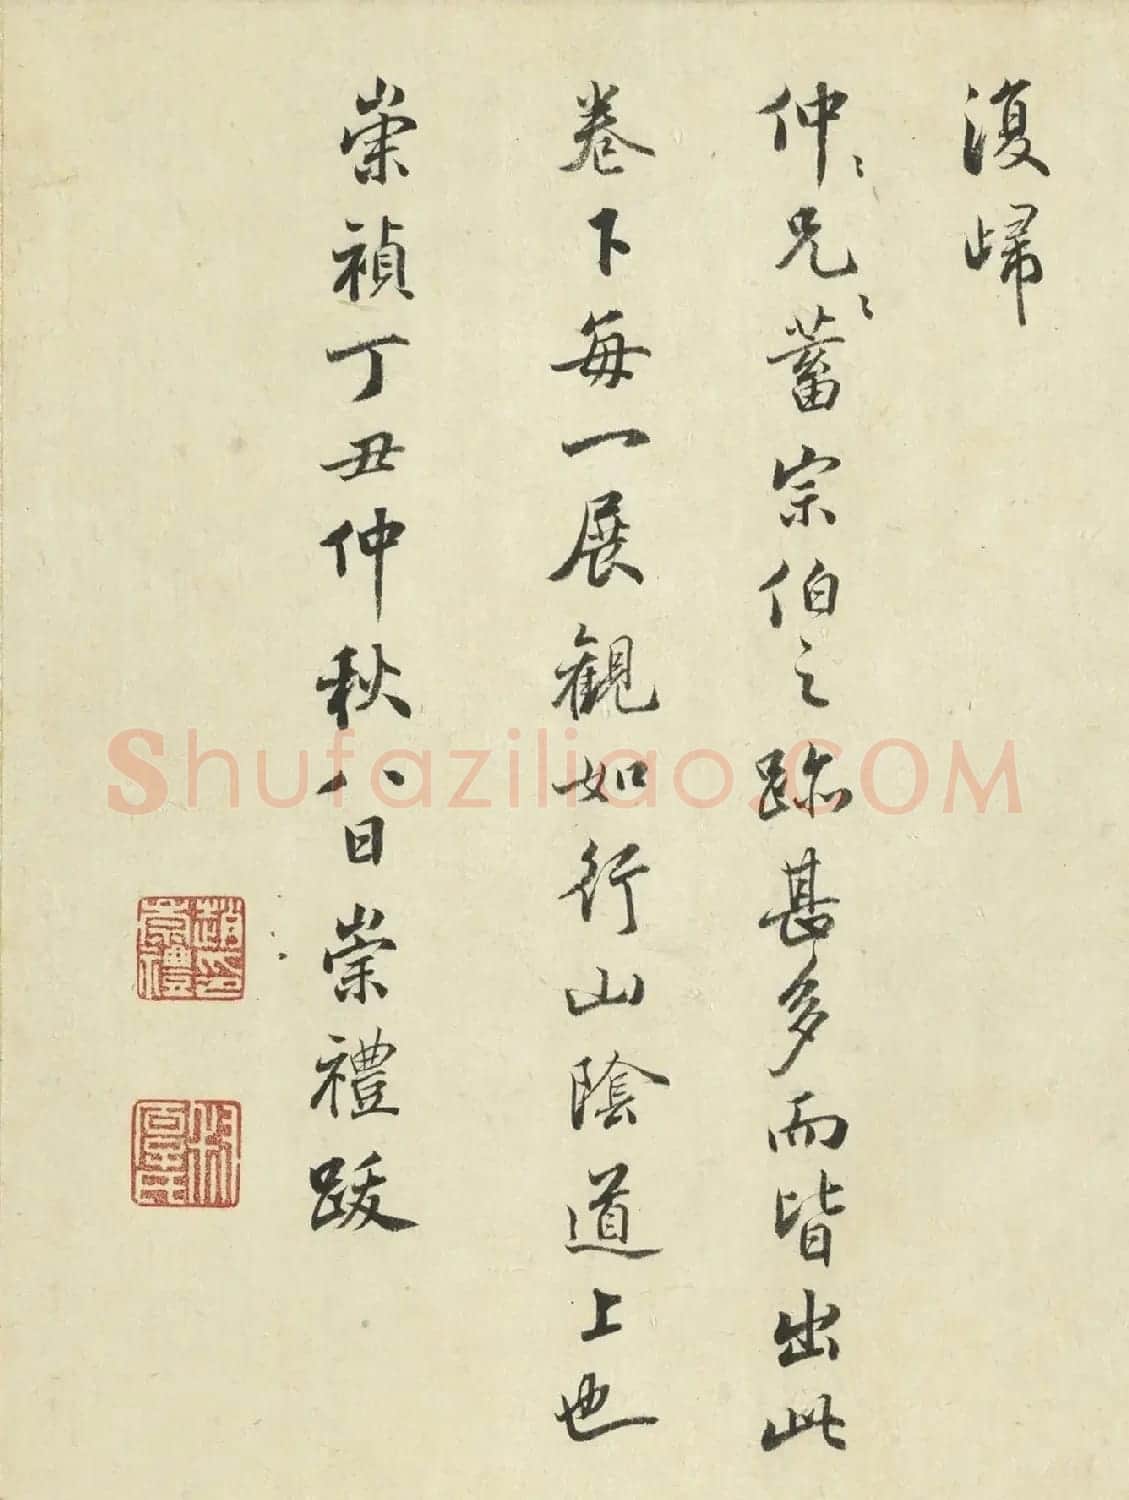 復歸
仲〻兄〻蓄宗伯之跡甚多而皆出此
卷下每一展觀如行山陰道上也
崇禎丁丑仲秋八日崇禮跋
趙崇禮印
ShufaziliaoCOM